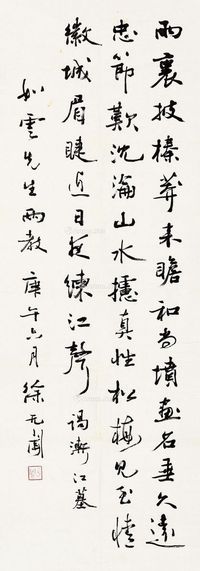 雨裏披榛莽来瞻和尚墳画名垂久遠
忠節歎沈淪山水攄真性松梅見至情
徽城眉睫近日夜練江聲 謁漸江墓
如雲先生兩教 庚午六月 徐无聞